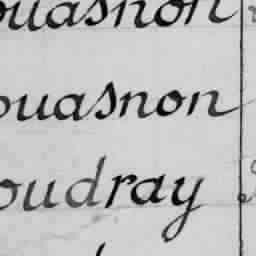 ouasnon
ouasnon
oudray